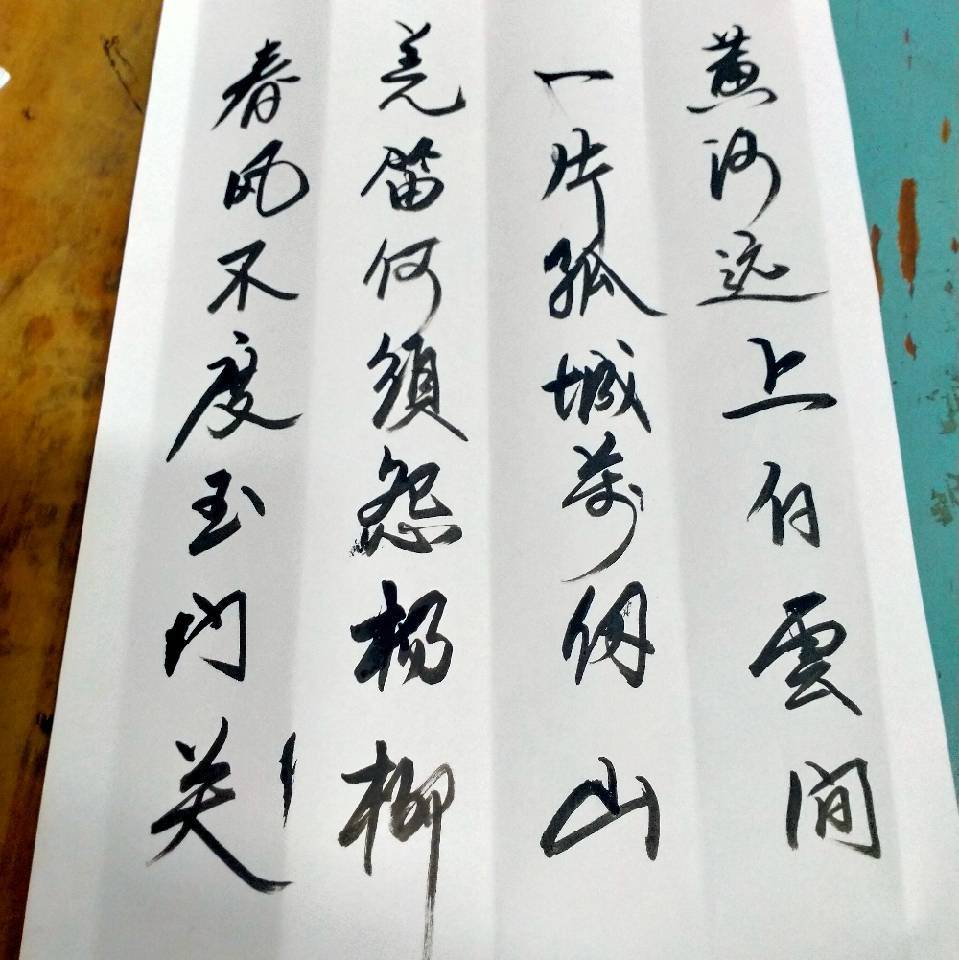 黄河远上白雲间
一片孤城萬仞山
羌笛何須怨杨柳
春风不度玉门关